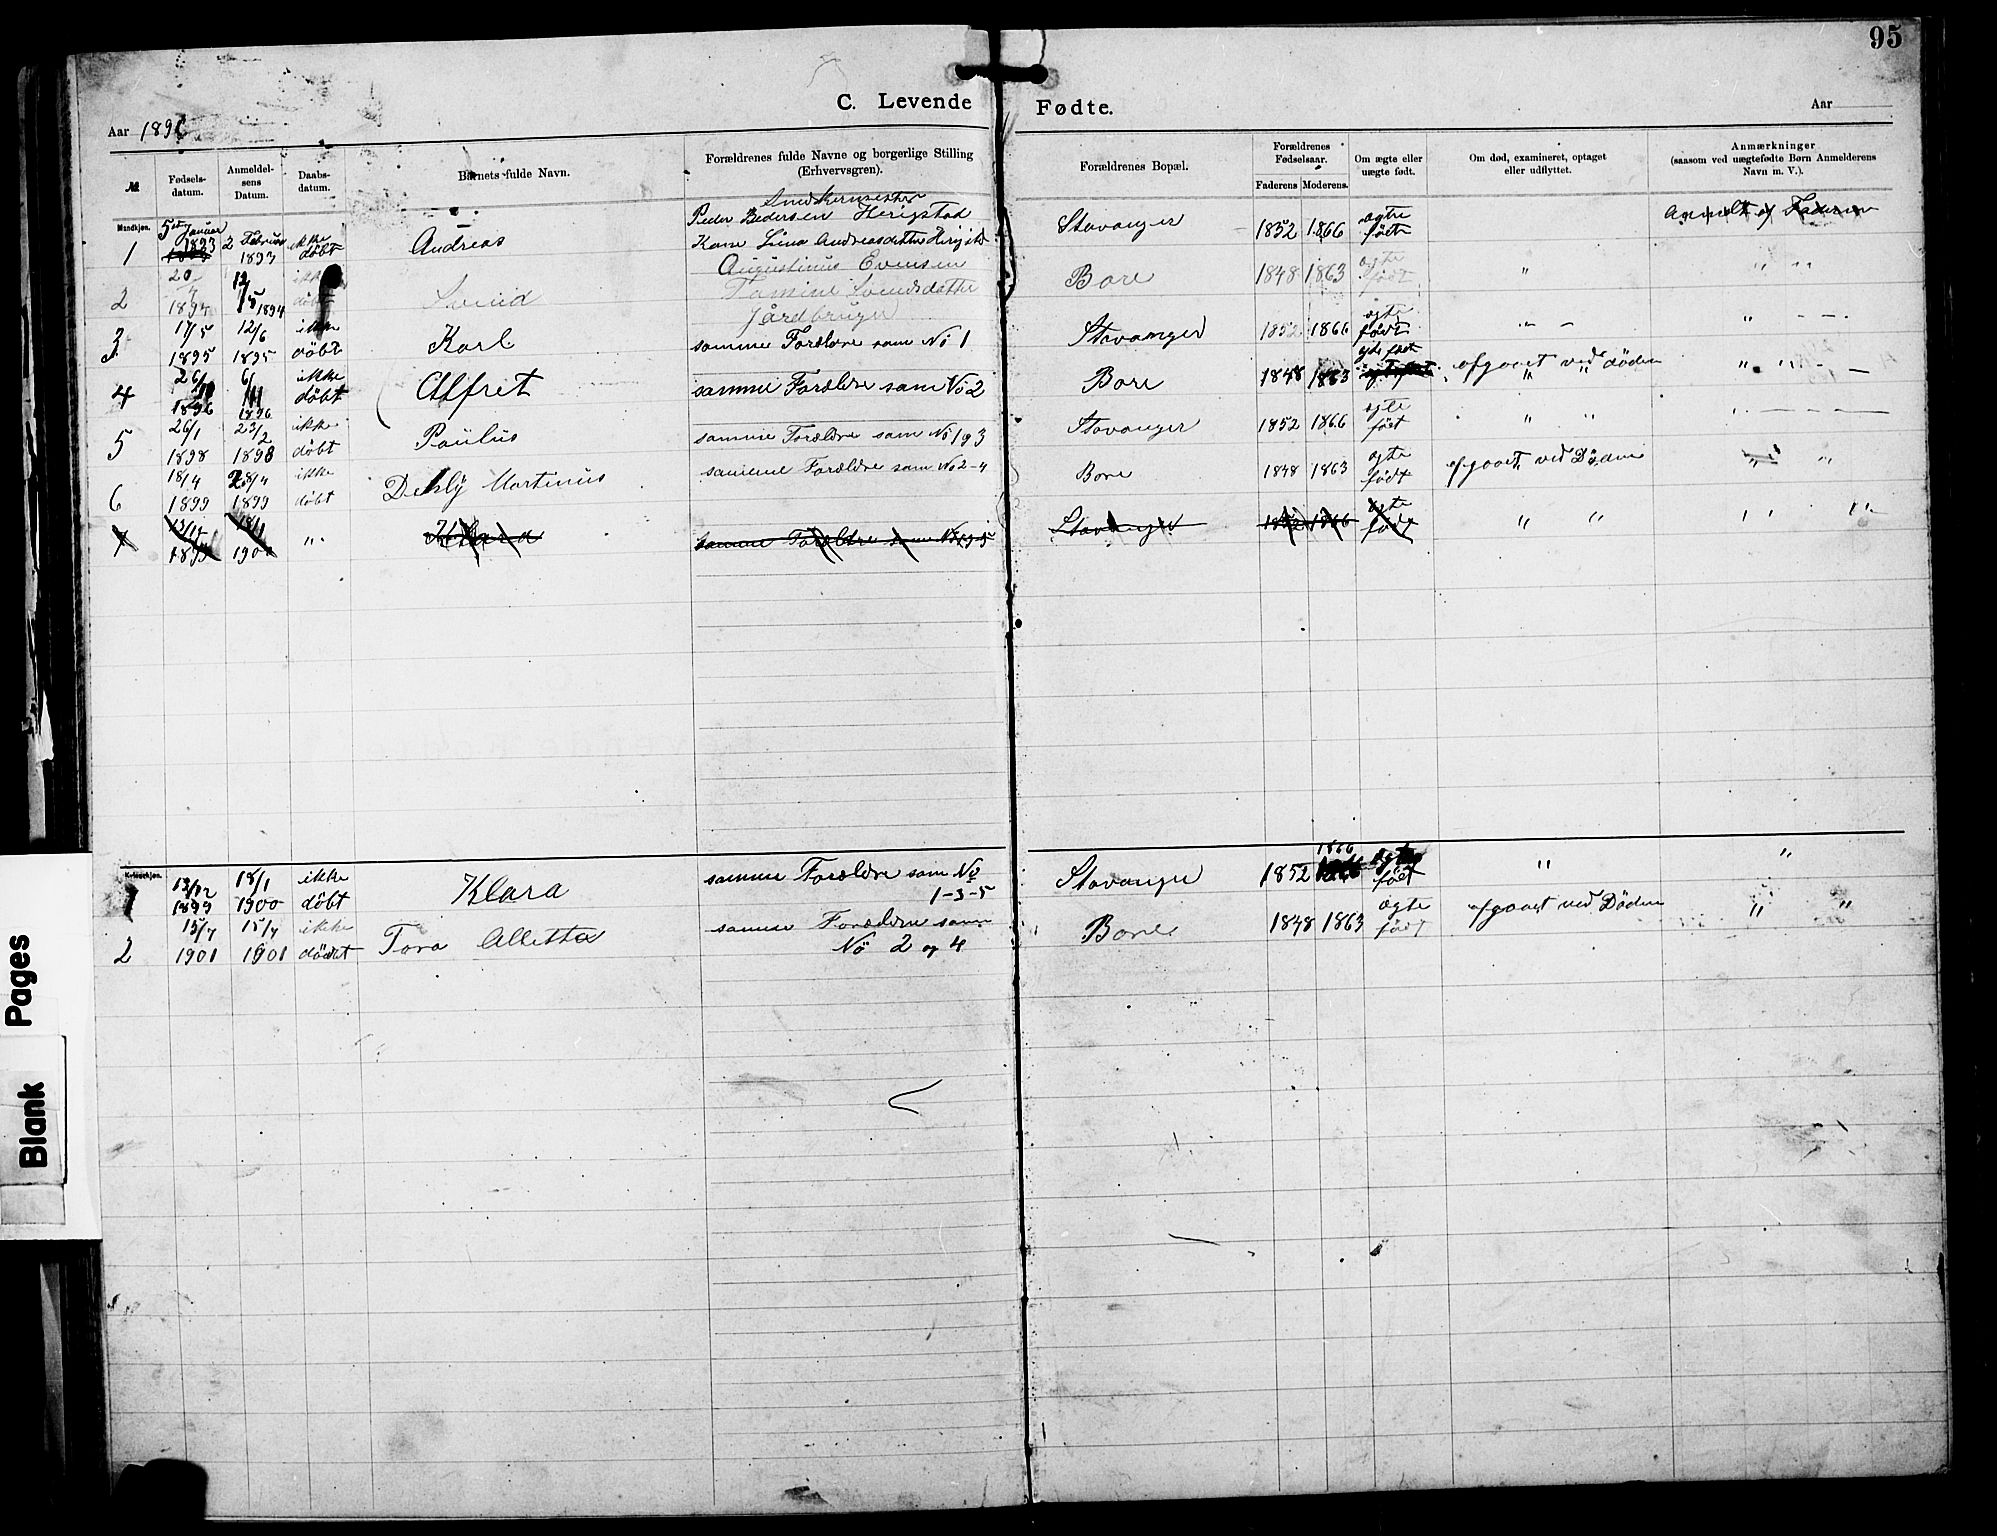 95
C. Levende Fødte.
Aar 189
Aar
№
Fødsels-datum.
Anmeldel-sens Datum.
Daabs-datum.
Barnets fulde Navn.
Forældrenes fulde Navne og borgerlige Stilling (Erhvervsgren).
Forældrenes Bopæl.
Forældrenes Fødselsaar.
Faderens
Moderens.
Om ægte eller uægte født.
Om død, examineret, optaget eller udflyttet.
Anmærkninger (saasom ved uægtefødte Børn Anmelderens Navn m. V.).
Mandkjøn.
1 5te Januar 1893 2 Februar 1893 ikke döbt Andreas Snedkermester Peder Pedersen Herigstad Kone Lina Andreasdatter Stavanger 1852 1866 ægte født Anmeldt af Faderen
2 20 1894 12/5 1894 ikke döbt Svend Augustinus Evensen Tomine Svendsdatter Jordbruger Bore 1848 1863 ægte født " " "
3 17/5 1895 12/6 1895 ikke döbt Karl samme Forældre som No 1 Stavanger 1852 1866 ægte født " - " -
4 26/10 1896 6/11 1896 ikke döbt Alfret samme Forældre som No 2 Bore 1848 1863 ægte født afgaaet ved döden " "
5 26/1 1898 23/2 1898 ikke döbt Paulus samme Forældre som No 1 og 3 Stavanger 1852 1866 ægte født " "
6 18/4 1899 28/4 1899 ikke döbt Martinus samme Forældre som No 2-4 Bore 1848 1863 ægte født afgaaet ved Döden " "
7 13/12 1899 18/1 1900 " Klara samme Forældre som No 1-3-5 Stavanger 1852 1866 ægte født " " " "
Kvindekjøn.
1 13/12 1899 18/1 1900 ikke döbt Klara samme Forældre som No 1-3-5 Stavanger 1852 1866 ægte født " "
2 15/7 1901 15/7 1901 ikke Tora Alletta samme Forældre som No 2 og 4 Bore 1848 1863 ægte født afgaaet ved Döden " "
Blank Pages